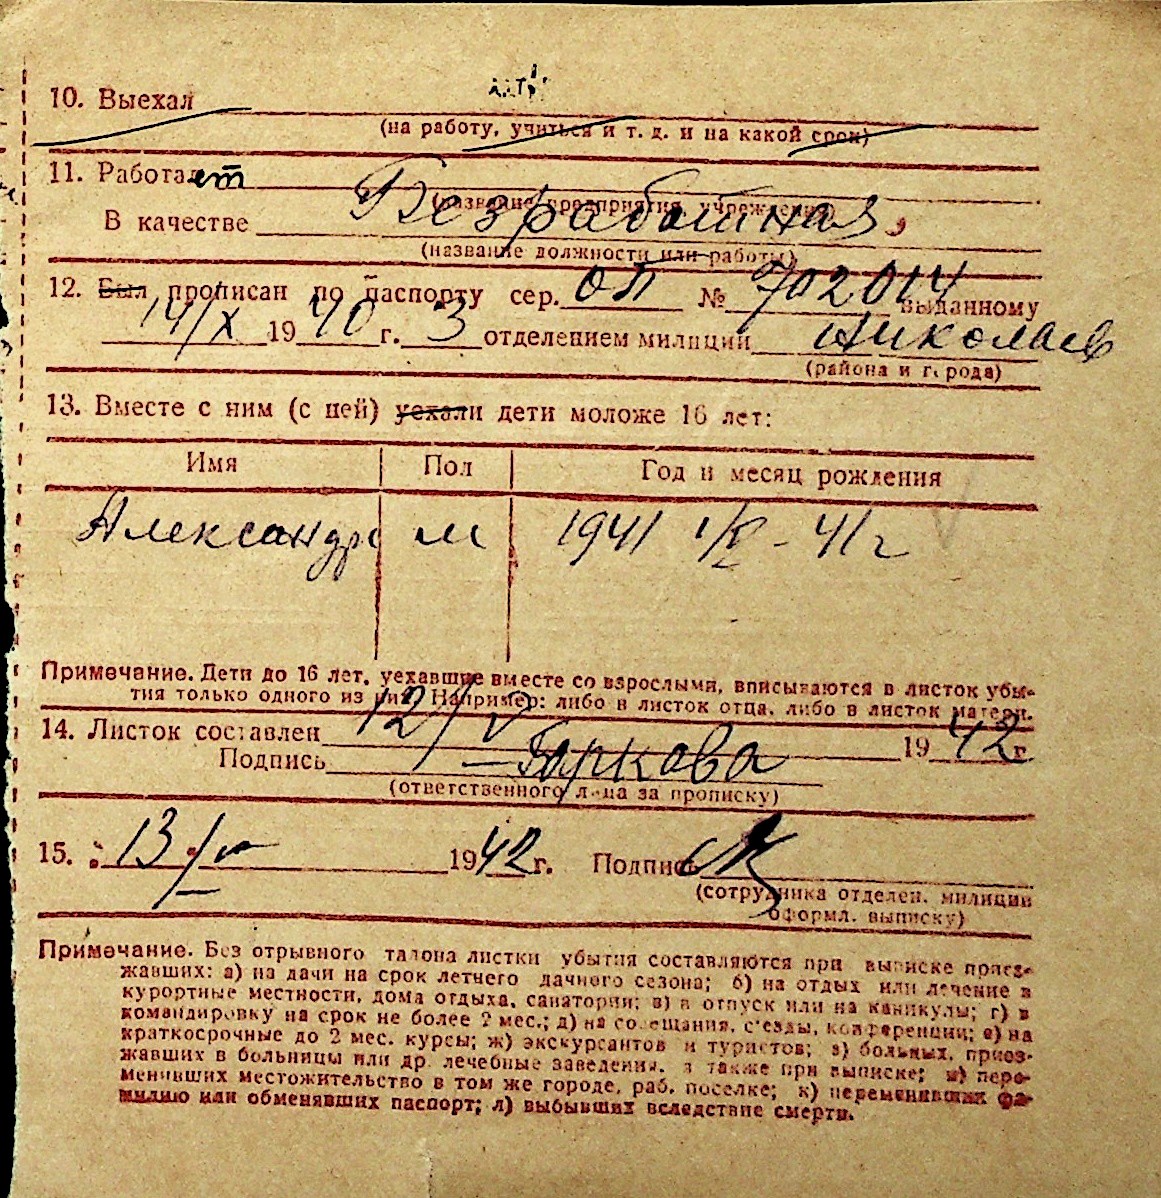 10. Выехал
(на работу, учиться и т. д. и на какой срок)
11. Работает
(название предприятия, учреждения)
В качестве Безработная,
(название должности или работы)
12. Был прописан по паспорту сер. ОП № 702014 выданному
14/X 1940 г. 3 отделением милиции Николаев
(района и города)
13. Вместе с ним (с ней) уехали дети моложе 16 лет:
Имя Пол Год и месяц рождения
Александр м 1941 1/V - 41 г
Примечание. Дети до 16 лет, уехавшие вместе со взрослыми, вписываются в листок убы-
тия только одного из них. Например: либо в листок отца, либо в листок матери.
14. Листок составлен 12/V 1942 г
Подпись Горкова
(ответственного лица за прописку)
15. 13/V 1942 г. Подпись
(сотрудника отделен. милиции
оформл. выписку)
Примечание. Без отрывного талона листки убытия составляются при выписке приез-
жавших: а) на дачи на срок летнего дачного сезона; б) на отдых или лечение в
курортные местности, дома отдыха, санатории; в) в отпуск или на каникулы; г) в
командировку на срок не более 2 мес.; д) на совещания, с'езды, конференции; е) на
краткосрочные до 2 мес. курсы; ж) экскурсантов и туристов; з) больных, приез-
жавших в больницы или др. лечебные заведения, а также при выписке; и) пере-
менивших местожительство в том же городе, раб. поселке; к) переменивших фа-
милию или обменявших паспорт; л) выбывших вследствие смерти.